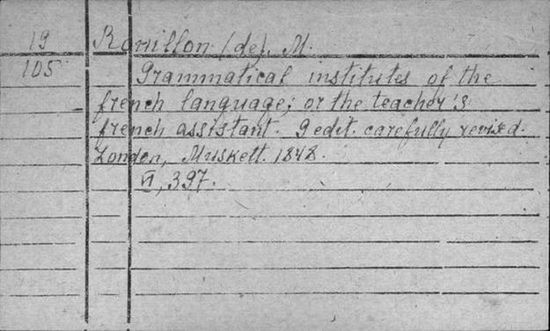 19 Rowillon (de). M.
105 Grammatical institutes of the
french language; or the teacher's
french assistant. 9 edit. carefully revised.
London, Muskett. 1848.
VI, 397.